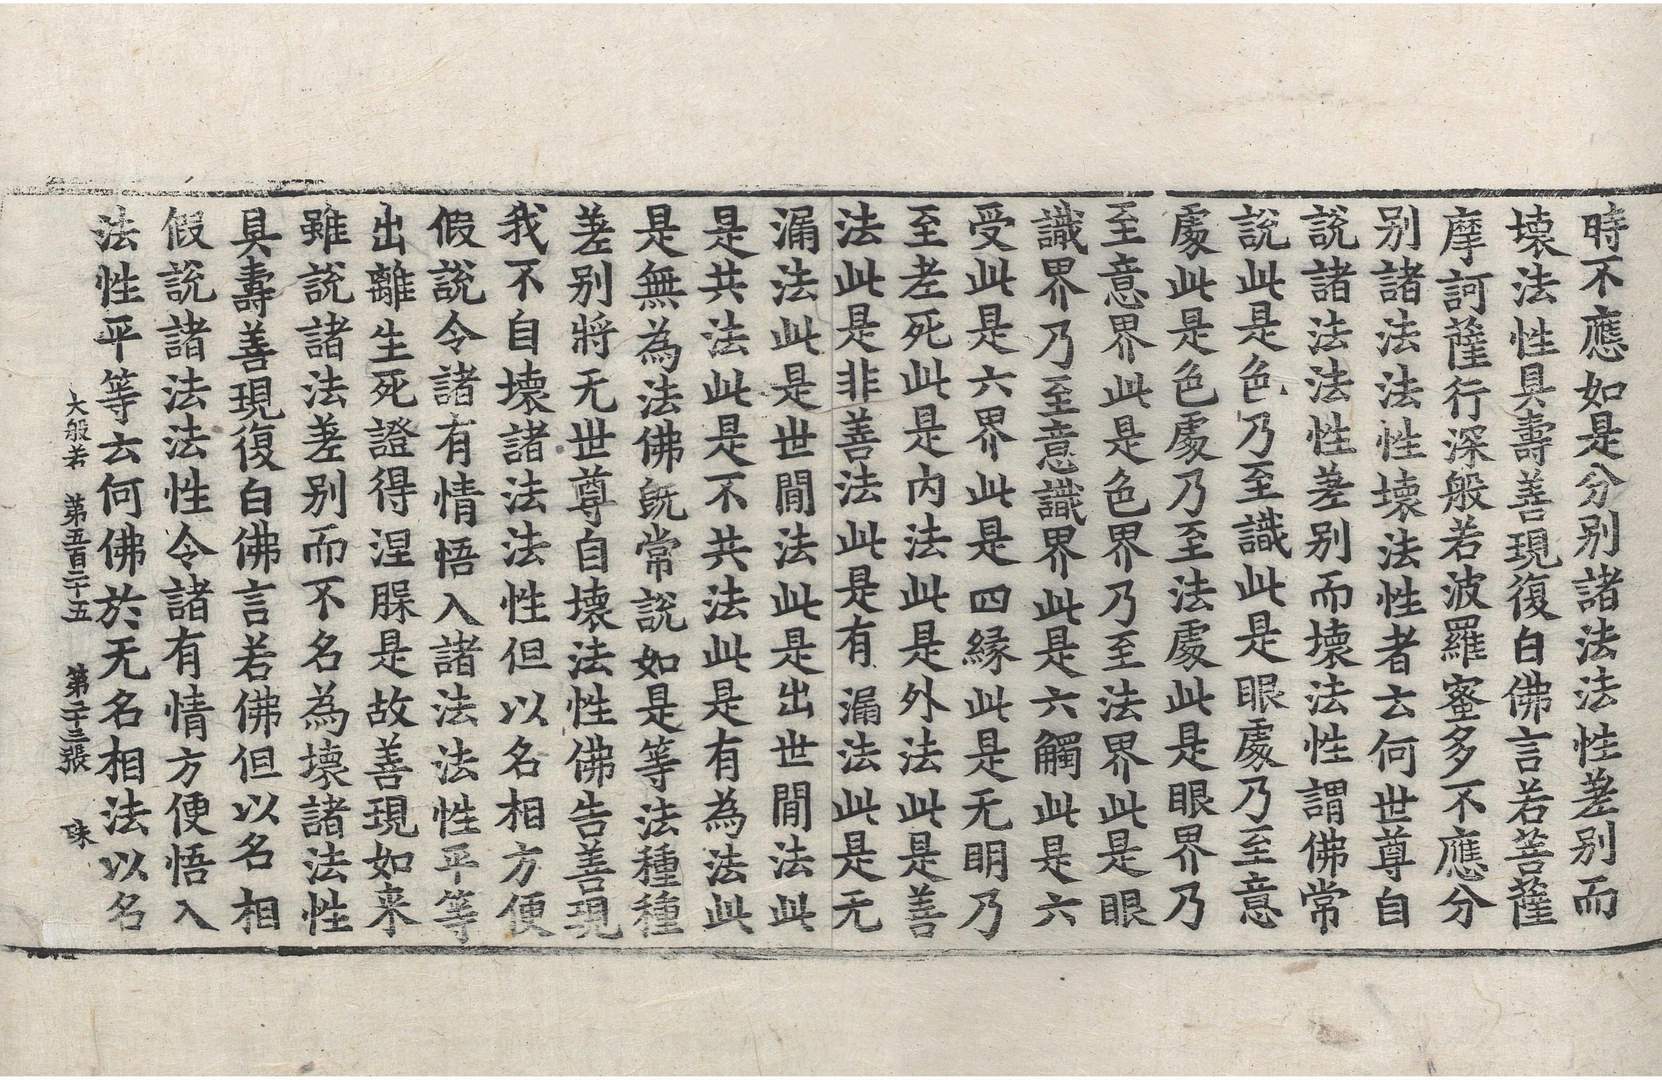 時不應如是分別諸法法性差別而
壞法性具壽善現復白佛言若菩薩
摩訶薩行深般若波羅蜜多不應分
別諸法法性壞法性者云何世尊自
說諸法法性差別而壞法性謂佛常
說此是色乃至識此是眼處乃至意
處此是色處乃至法處此是眼界乃
至意界此是色界乃至法界此是眼
識界乃至意識界此是六觸此是六
受此是六界此是四緣此是无明乃
至老死此是內法此是外法此是善
法此是非善法此是有漏法此是无
漏法此是世間法此是出世間法此
是共法此是不共法此是有為法此
是無為法佛旣常說如是等法種種
差別將无世尊自壞法性佛告善現
我不自壞諸法法性但以名相方便
假說令諸有情悟入諸法法性平等
出離生死證得涅脲是故善現如来
雖說諸法差別而不名為壞諸法性
具壽善現復白佛言若佛但以名相
假說諸法法性令諸有情方便悟入
法性平等云何佛於无名相法以名
大般若 第五百二十五 第二十三張 珠